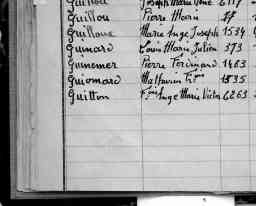 Guillou Pierre Marie 17
Guilloux Marie Ange Joseph 1534
Guinard Louis Marie Julien 373
Guinemer Pierre Ferdinand 1483
Guiomard Mathurin 1535
Guitton Ange Marie Victor 6263